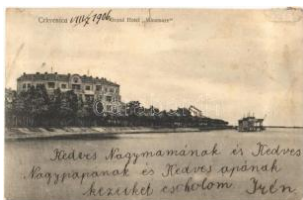 Crkvenica VIII/7 1906 Grand Hotel „Miramare"
Kedves Nagymamának és Kedves
Nagypapának és Kedves apának
kezeiket csókolom. Irén